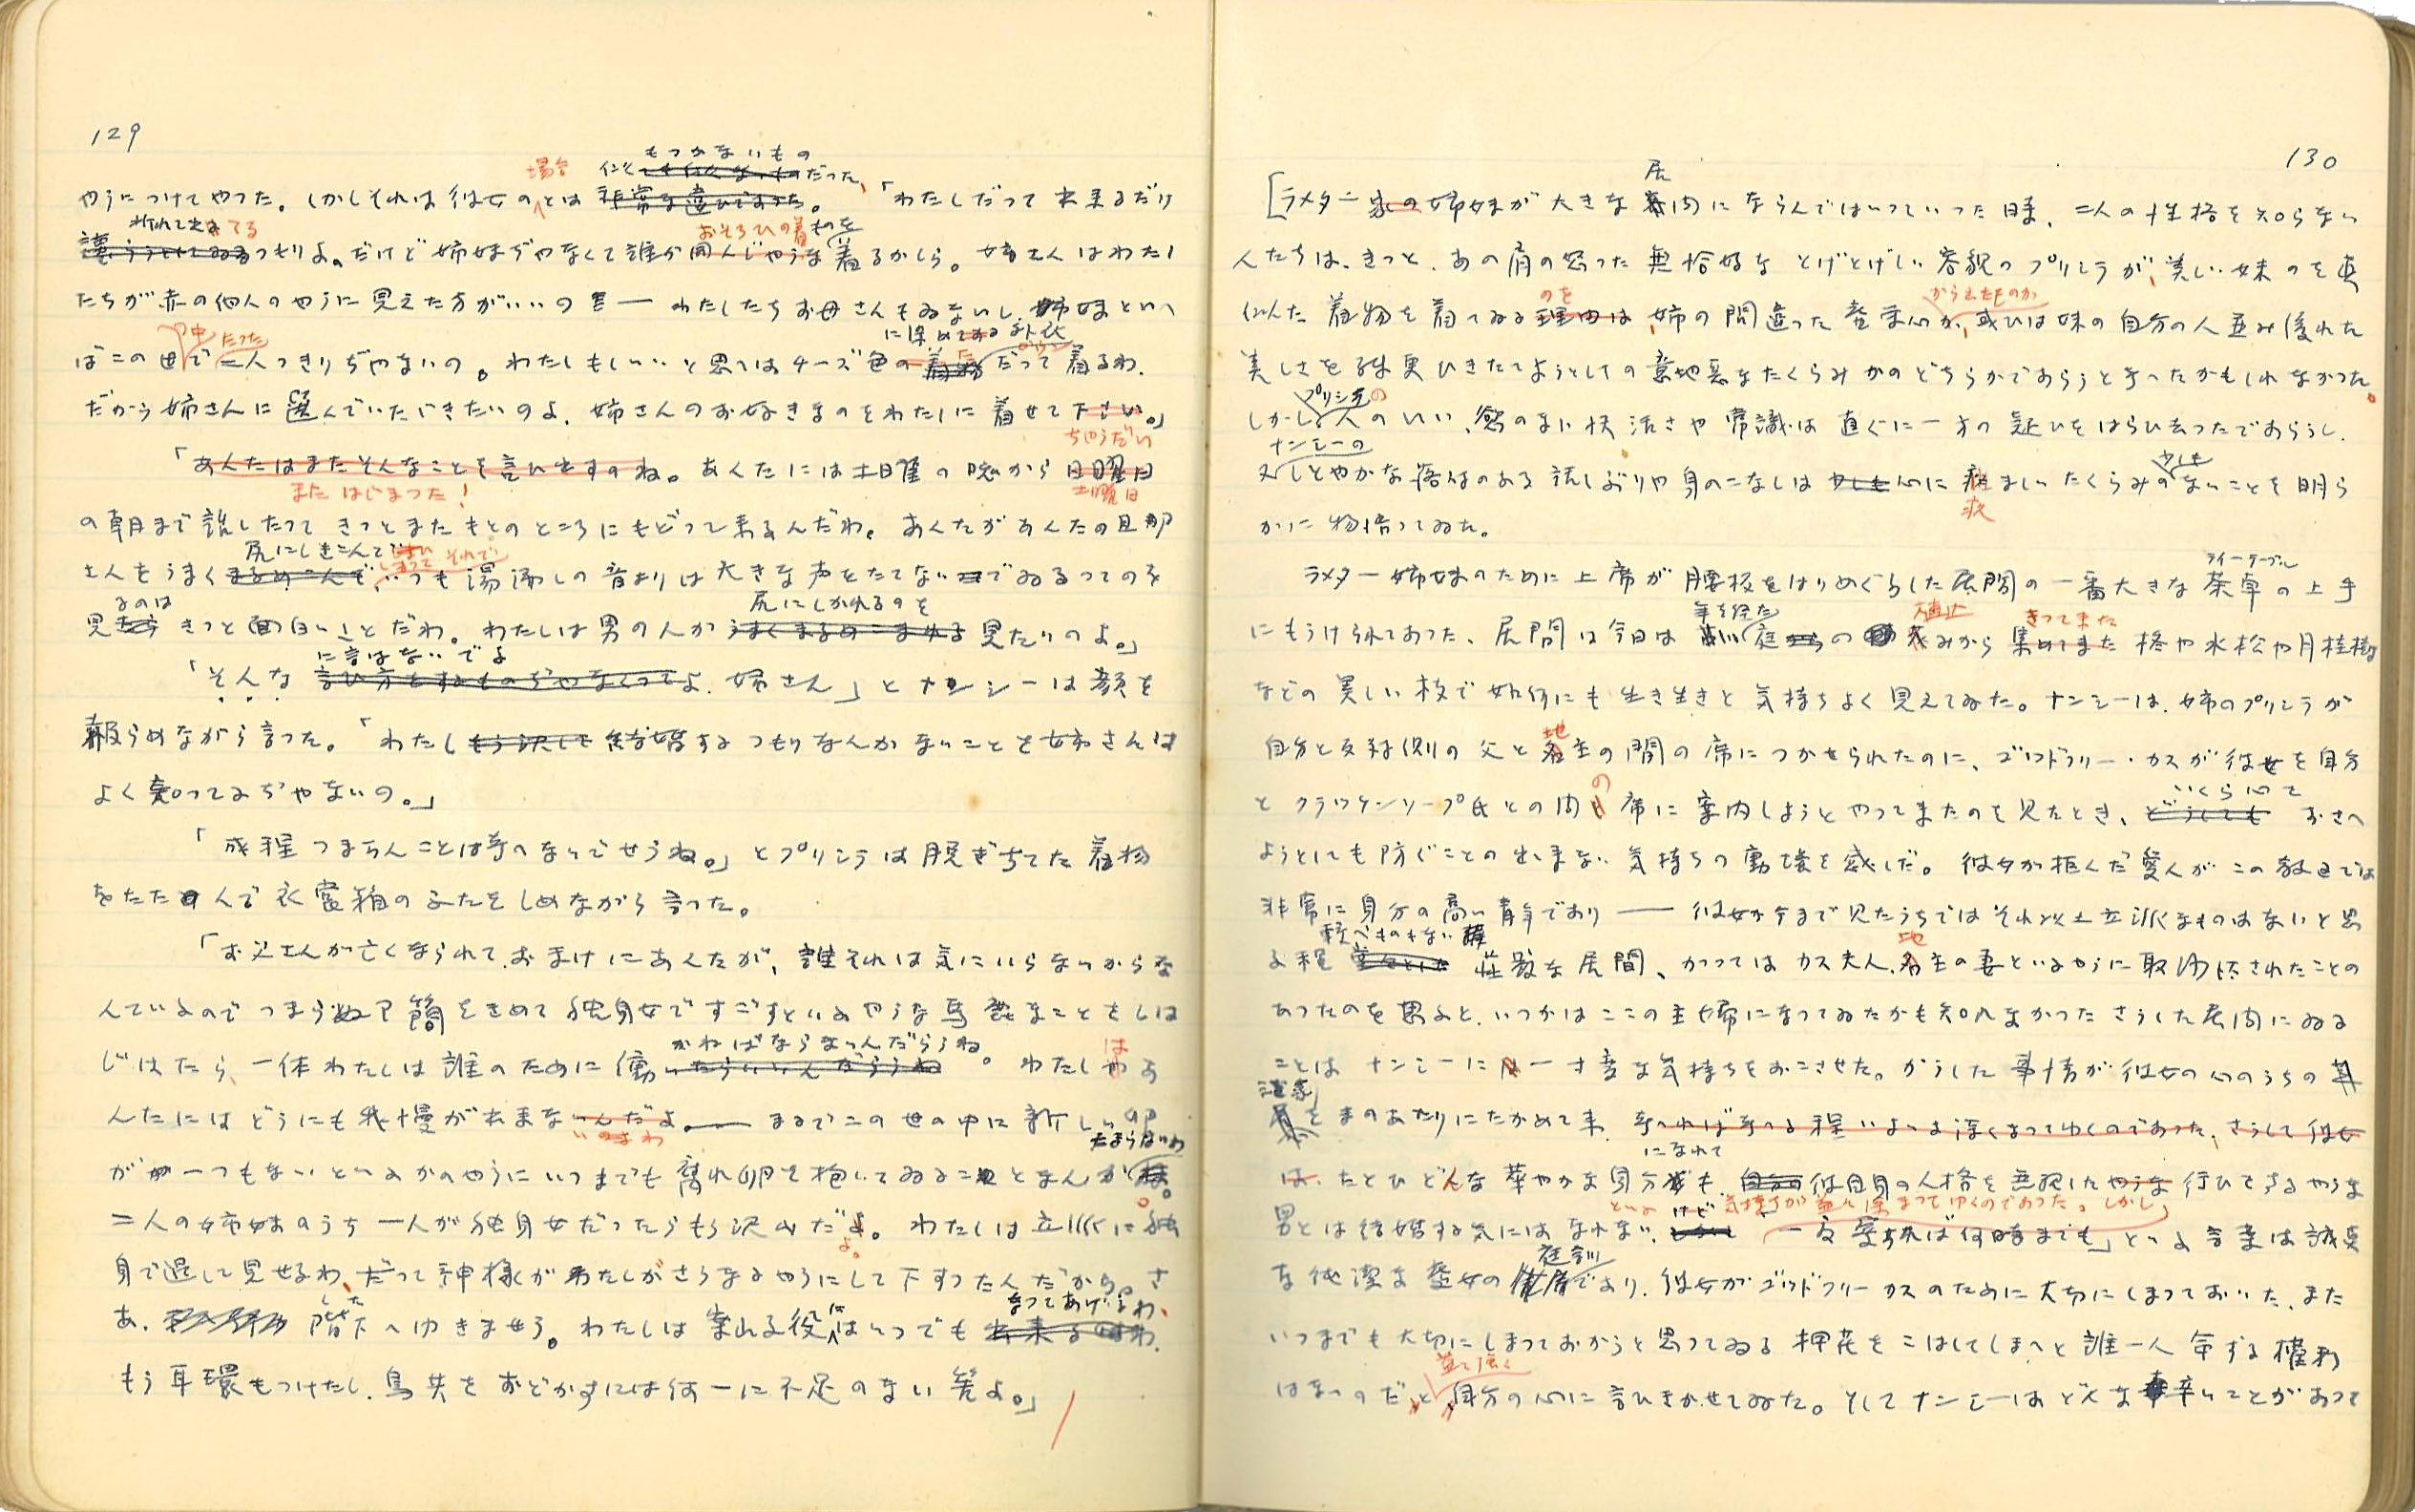 129
もつかないもの
場合 似ても似つかなかつただった、
やうにつけてやつた。しかしそれは彼女のとは非常な違ひであつた。「わたしだって出来るだけ
折れて出てる おそろひの着ものを
譲らうとしてゐるつもりよ。だけど姉妹ぢやなくて誰が同んじやうな着るかしら。姉さんはわたし
たちが赤の他人のやうに見えた方がいいの?― わたしたちお母さんもゐないし、姉妹といへ
の中 たつた に染めた外衣
ばこの世で二人つきりぢやないの。わたしもしいいと思へばチーズ色の着物だって着るわ。
だから姉さんに選んでいただきたいのよ、姉さんのお好きなのをわたしに着せて下さい。」
ちやうだい
「あんたはまたそんなことを言ひ出すのね。あんたには土曜の晩から日曜日
またはじまつた! 土曜日
の朝まで話したつてきつとまたもとのところにもどつて来るんだわ。あんたがあんたの旦那
尻にしきこんでしまつて それで
さんをうまくまるめこんで、いつも湯沸しの音よりは大きな声をたてないでゐるつてのを
るのは 尻にしかれるのを
見たら きつと面白いことだわ。わたしは男の人がうまくまるめこまれる見たいのよ。」
に言はないでよ
「そんな言ひ方をするものぢやなくつてよ、姉さん」とナンシーは顔を
赧らめながら言つた。「わたしもう決して結婚するつもりなんかないことを姉さんは
よく知つてるぢやないの。」
「成程つまらんことは言へないでせうね。」とプリシラは脱ぎ捨てた着物
をたたんで衣裳箱のふたをしめながら言つた。
「お父さんが亡くなられて、おまけにあんたが、誰それは気にいらないからな
んていふのでつまらぬ了簡をきめて独身女ですごすといふやうな馬鹿なことをしは
かねばならないんだらうね。 は
じめたら、一体わたしは誰のために働いたらいいんだらうね。わたしやあ
んたにはどうにも我慢が出来ないんだよ。― まるでこの世の中に新しい卵
いのよわ たまらないわ
が一つもないといふかのやうにいつまでも腐れ卵を抱いてゐることなんか
二人の姉妹のうち一人が独身女だつたらもう沢山だよ。わたしは立派に独
身で通して見せるわ、だつて神様がわたしがさうなるやうにして下すつたんだから。さ
した なつてあげるわ、
あ、階下へゆきませう。わたしは案山子役にはいつでも出来るのわ。
もう耳環もつけたし、鳥共をおどかすには何一に不足のない筈よ。」
130
居
[ラメター家の姉妹が大きな客間にならんではいつていつた時、二人の性格を知らない
人たちは、きつと、あの肩の怒つた無恰好なとげとげしい容貌のプリシラが、美しい妹のを真
のを からきたものか
似た着物を着てゐる理由は、姉の間違つた虚栄心か、或ひは妹の自分の人並み優れた
美しさを殊更ひきたてようとしての意地悪なたくらみかのどちらかであらうと言つたかもしれなかつた。
プリシラの
しかし、人のいい、慾のない快活さや常識は直ぐに一方の疑ひをはらひ去つたであらうし、
ナンシーの 少しも
又しとやかな落付のある話しぶりや身のこなしは少しも心に疚ましいたくらみのないことを明ら
疚
かに物語つてゐた。
ティーテーブル
ラメター姉妹のために上席が腰板をはりめぐらした居間の一番大きな茶卓の上手
年を経た 植込 きつてきた
にもうけられてあつた、居間は今日は古い庭の茂みから集めてきた柊や水松や月桂樹
などの美しい枝で如何にも生き生きと気持ちよく見えてゐた。ナンシーは、姉のプリシラが
地
自分と反対側の父と名主の間の席につかせられたのに、ゴッドフリー・カスが彼女を自分
の いくら心を
とクラッケンソープ氏との間の席に案内しようとやつてきたのを見たとき、どうしても おさへ
ようとしても防ぐことの出来ない気持ちの動揺を感じた。彼女が拒んだ愛人がこの教区では
非常に身分の高い青年であり―― 彼女が今まで見たうちではそれ以上立派なものはないと思
較べものもない 地
ふ程 荘厳な居間、かつてはカス夫人、名主の妻といふやうに取沙汰されたことの
あつたのを思ふと、いつかはここの主婦になつてゐたかも知れなかつたさうした居間にゐる
ことはナンシーに一寸変な気持ちをおこさせた。かうした事情が彼女の心のうちの
をまのあたりにたかめて来、考へれば考へる程いよいよ深くなつてゆくのであつた、さうして彼女
になれて
は、たとひどんな華やかな身分でも、自分の彼自身の人格を無視したやうな行ひをするやうな
といふ 気持ちが益々深まつてゆくのであつた。しかし
男とは結婚する気にはなれない、けど「一度愛すれば何時までも」といふ言葉は誠実
庭訓
な純潔な處女の であり、彼女がゴッドフリーカスのために大切にしまつておいた、また
いつまでも大切にしまつておかうと思つてゐる押花をこはしてしまへと誰一人命ずる権利
益々強く
はないのだ、と自分の心に言ひきかせてゐた。そしてナンシーはどんな辛いことがあつて